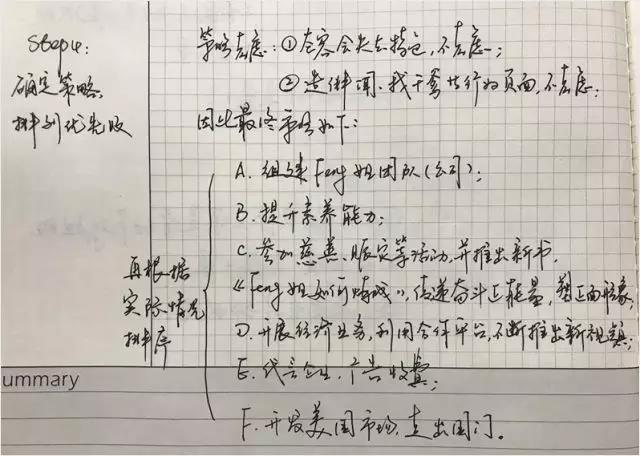 Step4:
确定策略,
排列优先级
策略考虑:① 整容会失去特色,不考虑;
② 造绯闻、找干爹其行为负面,不考虑;
因此最终策略如下:
A. 组建Feng姐团队(公司);
B. 提升素养能力;
C. 参加慈善、赈灾等活动,并推出新书,
《Feng姐如何炼成》,传递奋斗正能量,塑正面形象;
D. 开展经济业务,利用合作平台,不断推出新视频;
E. 代言企业,广告收费;
F. 开发美国市场,走出国门。
再根据
实际情况
排序
ummary